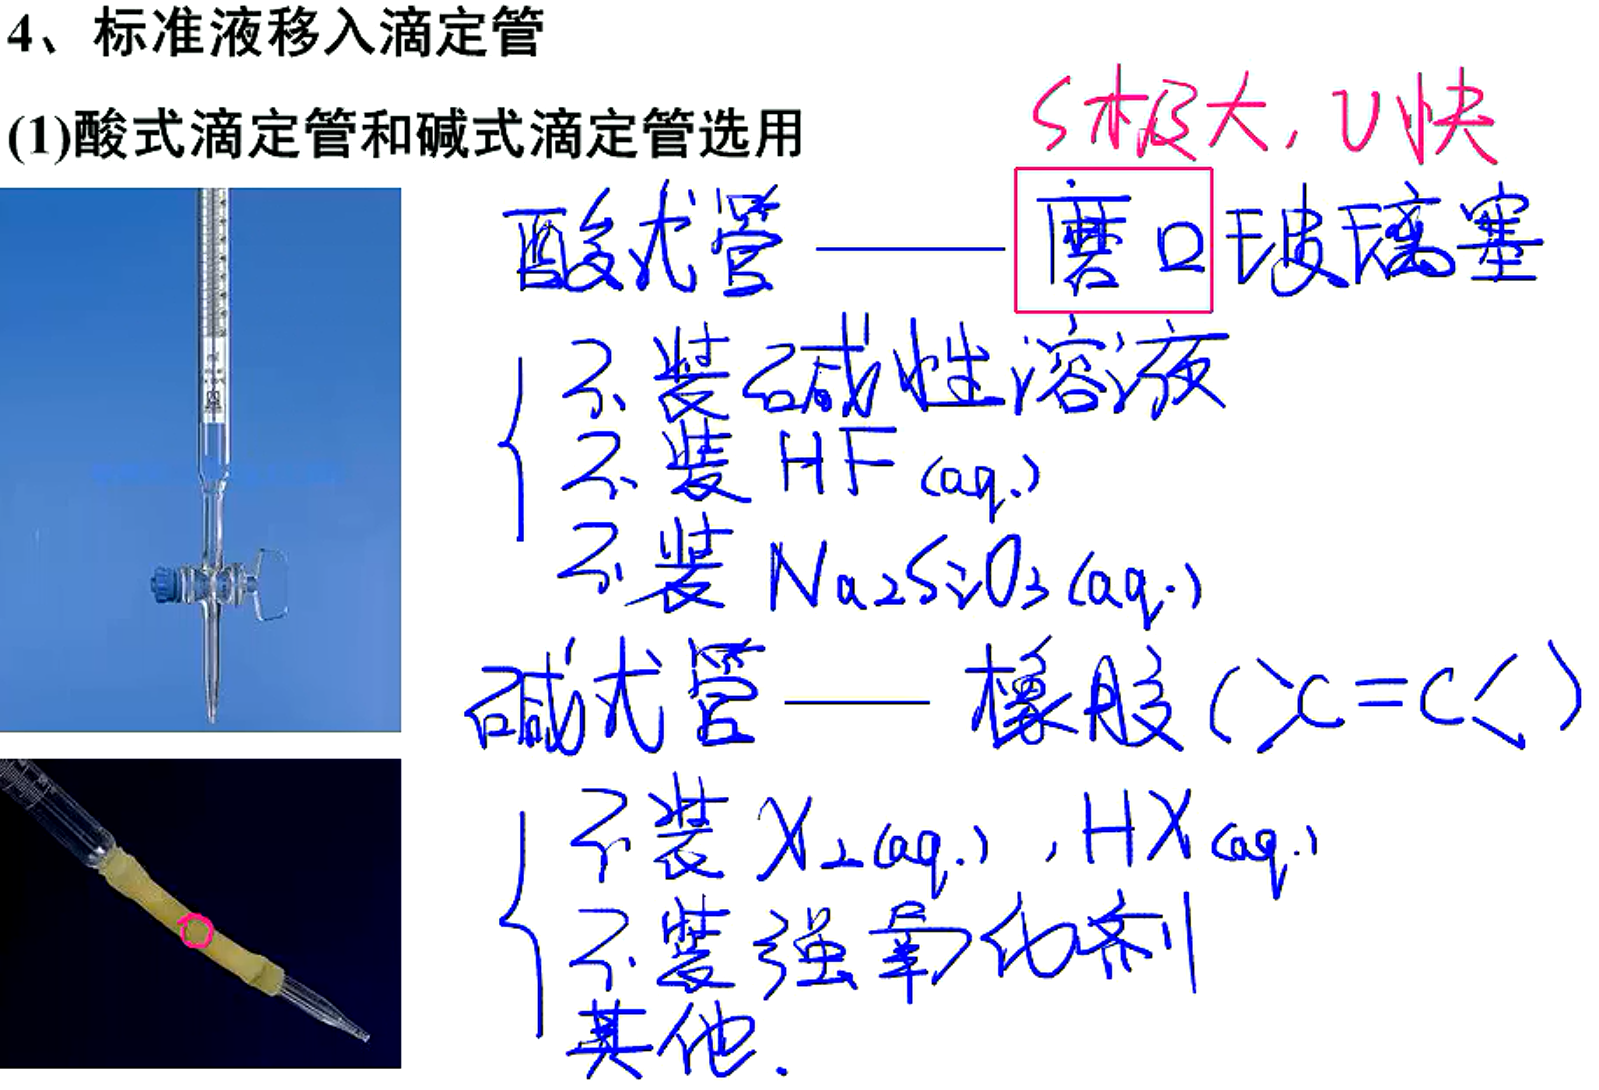 4、标准液移入滴定管
(1)酸式滴定管和碱式滴定管选用
S极大, υ快
酸式管——磨口玻璃塞
不装碱性溶液
不装HF(aq.)
不装Na2SiO3(aq.)
碱式管——橡胶(>C=C<)
不装X2(aq.), HX(aq.)
不装强氧化剂
其他.